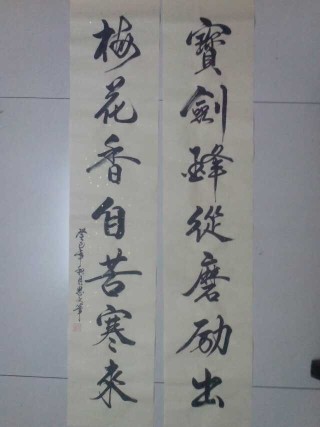 寶劍鋒從磨勵出
梅花香自苦寒來
癸巳年